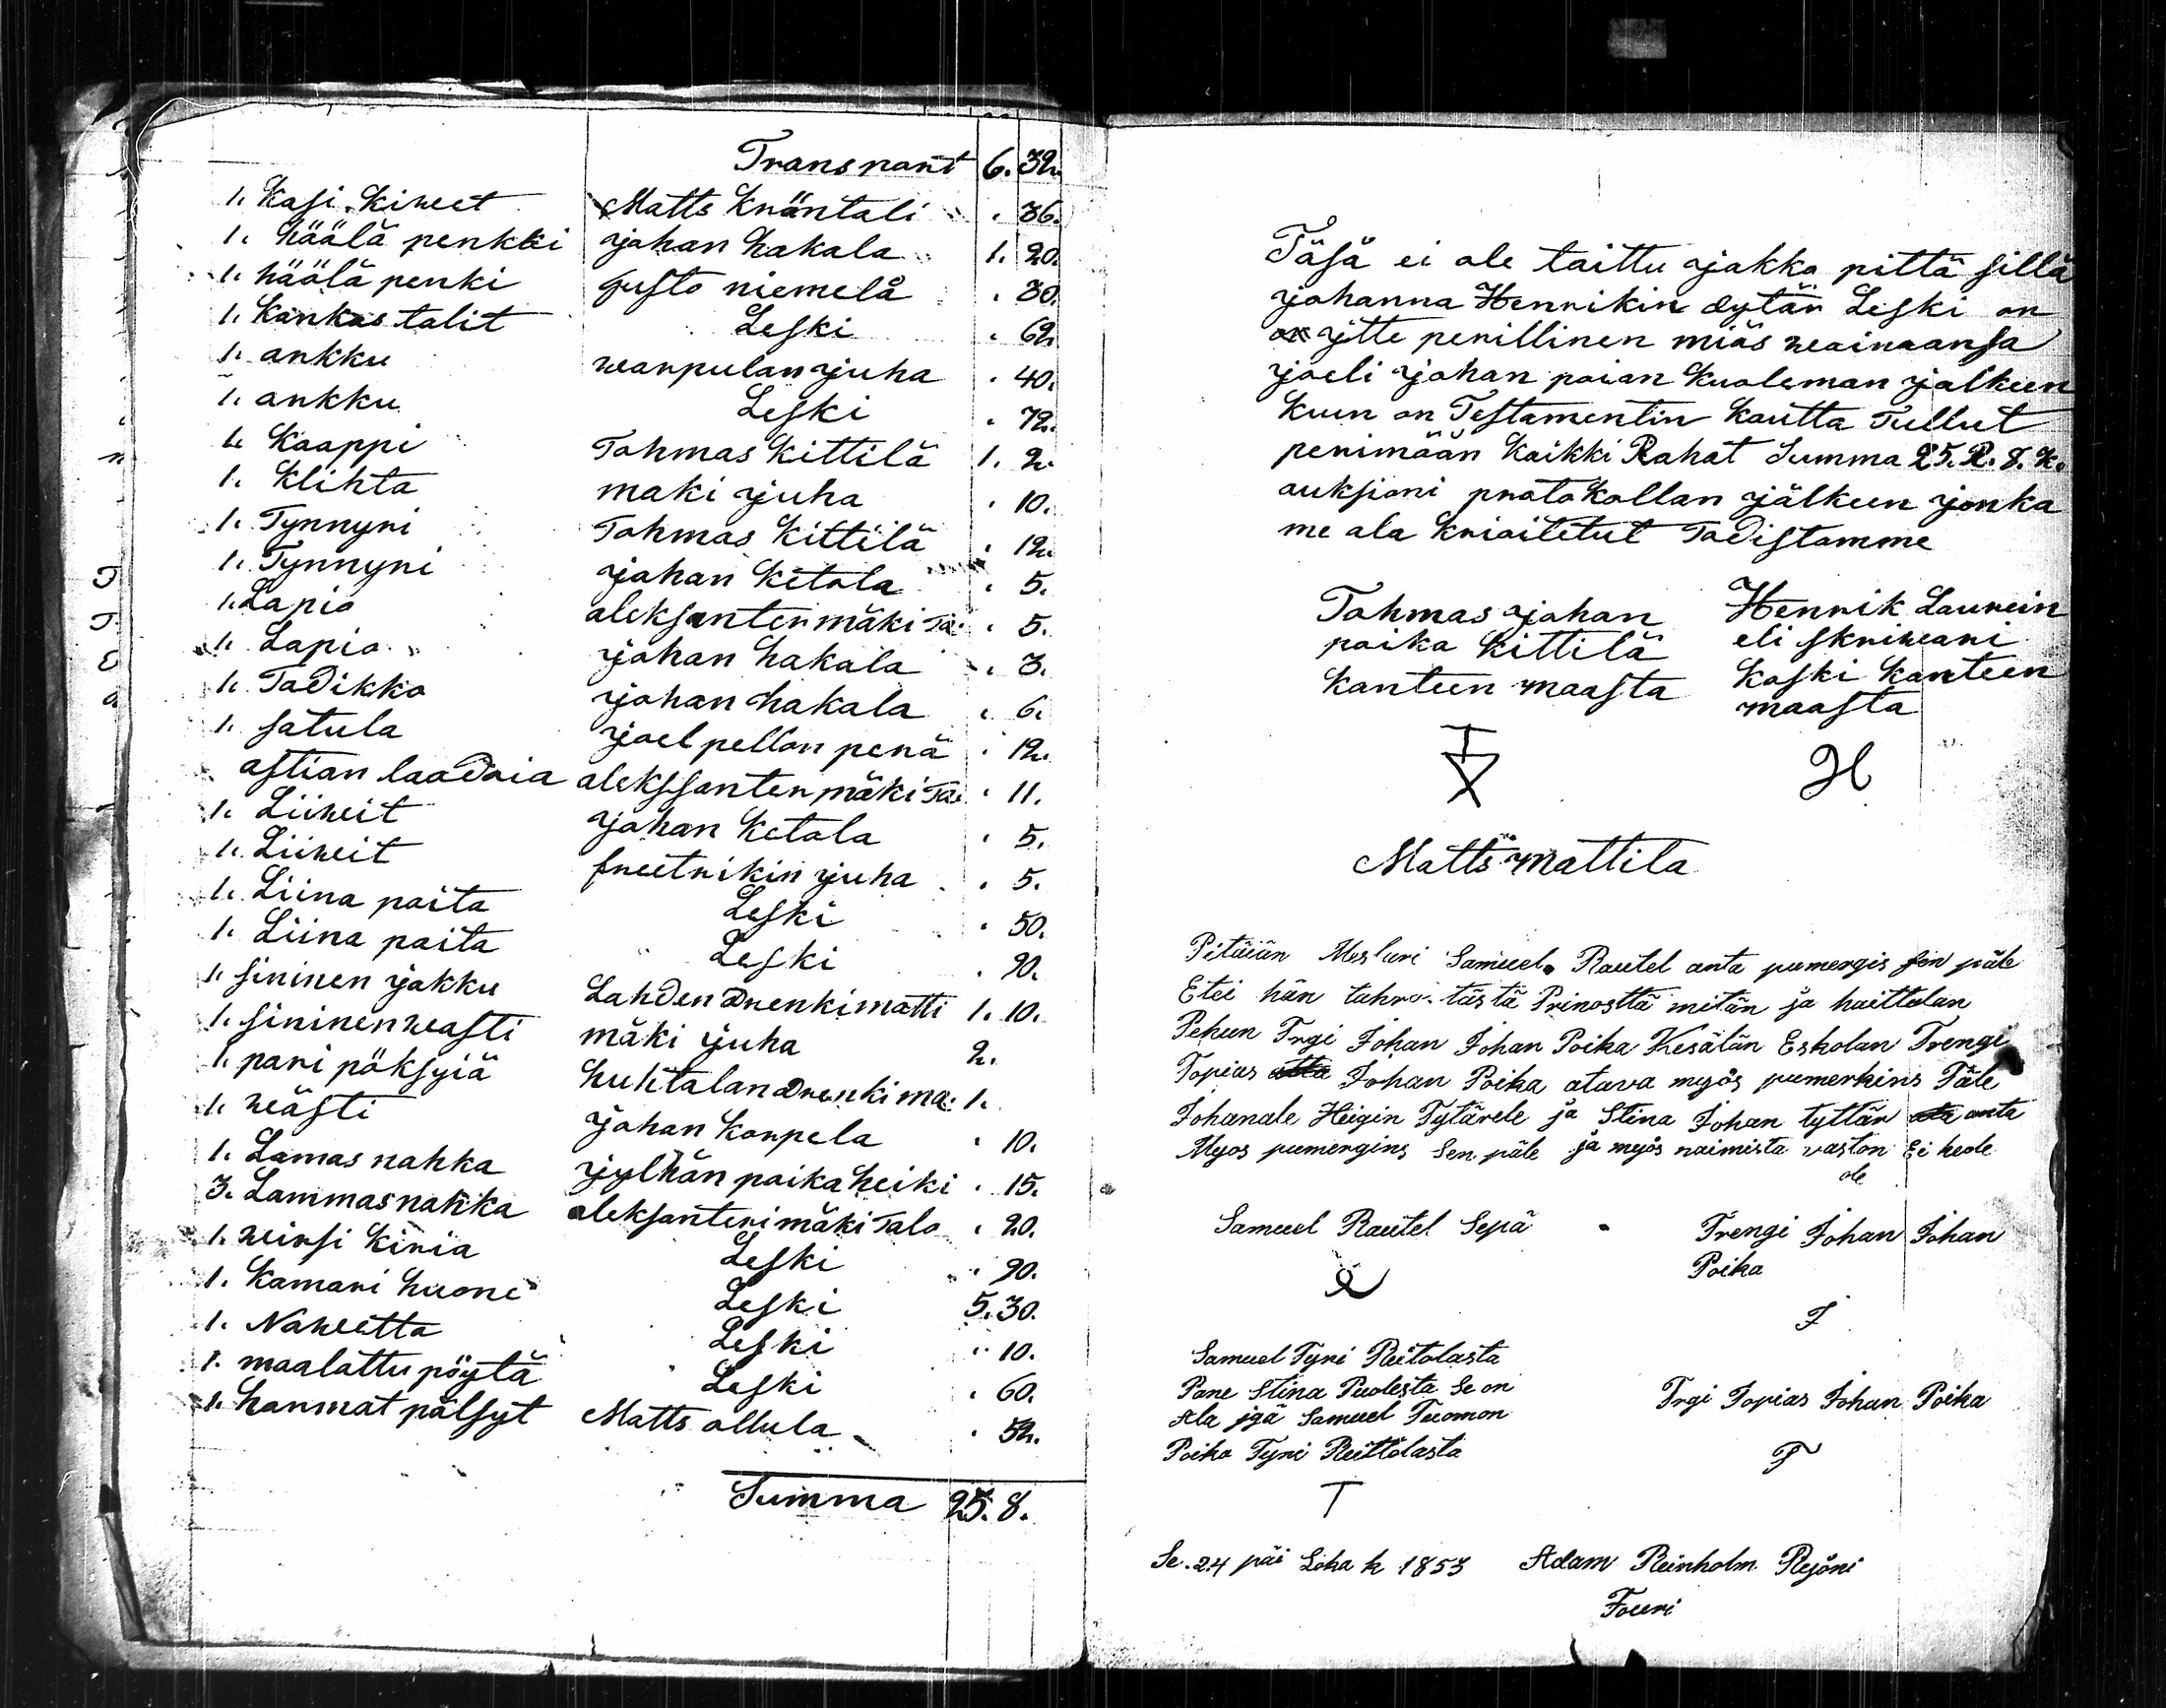 Transport 6. 32.
1. Kasi kiweet Matts Knäntali . 36.
1. höölä penkki johan hakala 1. 20.
1. höölä penki Justo niemelä . 30.
1. Kankas talit Leski . 62.
1. ankku warpulan juha . 40.
1. ankku Leski . 72.
1. Kaappi Tohmas Kittilä 1. 2.
1. Klihta maki juha . 10.
1. Tynnyri Tohmas Kittilä . 12.
1. Tynnyri johan Ketola . 5.
1. Lapio aleksanter mäki Ta: . 5.
1. Lapio johan hakala . 3.
1. Tadikko johan hakala . 6.
1. satula joel pellon perä . 12.
astian laadoia aleksanter mäki Ta: . 11.
1. Liiweit johan Ketola . 5.
1. Liiweit freetrikin juha . 5.
1. Liina paita Leski . 50.
1. Liina paita Leski . 90.
1. sininen jakku Lahden Drenki matti 1. 10.
1. sininen weasti mäki juha 2.
1. pari pöksyiä huhtalan Drenki ma: 1.
1. weästi johan Korpela . 10.
1. Lamas nahka jylhän poika heiki . 15.
3. Lammas nahka aleksanteri mäki Talo . 20.
1. weirsi Kiria Leski . 90.
1. Kamari huone Leski 5. 30.
1. Naweetta Leski . 10.
1. maalattu pöytä Leski . 60.
1. harmat pälsyt Matts ollula . 52.
Summa 25. 8.
Täsä ei ole taittu jakko pittä sillä
johanna Henrikin dytär Leski on
jtte perillinen miäs weainaansa
joeli johan poian Kuoleman jalkeen
Kuin on Testamentin Kautta Tullut
perimään Kaikki Rahat Summa 25. R. 8. K.
auksioni protokollan jälkeen jonka
me ala kriaitetut Todistamme
Tohmas johan Henrik Laurein
poika Kittilä eli skriweari
Kanteen maasta Koski Kanteen
maasta
H
Matts mattila
Pitäiän Mesluri Samuel Rautel anta pumergis sen päle
Etei hän tahro tästä Prinosttä mitän ja haittolan
Pehun Trgi Johan Johan Poika Kesälän Eskolan Trengi
Topias Johan Poika atava myös pumerkins Päle
Johanale Heigin Tytärele ja Stina Johan tyttär anta
Myos pumergins Sen päle ja myös naimista vaston Ei heole
ole
Samuel Rautel Sepä Trengi Johan Johan
Poika
J
Samuel Tyri Reitolasta
Pane Stina Puolesta Se on
Ala jgä Samuel Tuomon Trgi Topias Johan Poika
Poika Tyri Reittolasta
T T
Se. 24 päi Loka k 1853 Adam Reinholm Rejöni
Fouri